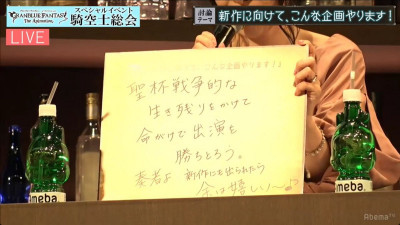 GRANBLUE FANTASY
The Animation
スペシャルイベント
騎空士総会
討論
テーマ
新作に向けて、こんな企画やります!
LIVE
聖杯戦争的な
生き残りをかけて
命がけで出演を
勝ちとろう。
奏者よ 新作にも出られたら
余は嬉しい〜♪
meba.
meba.
AbemaTV